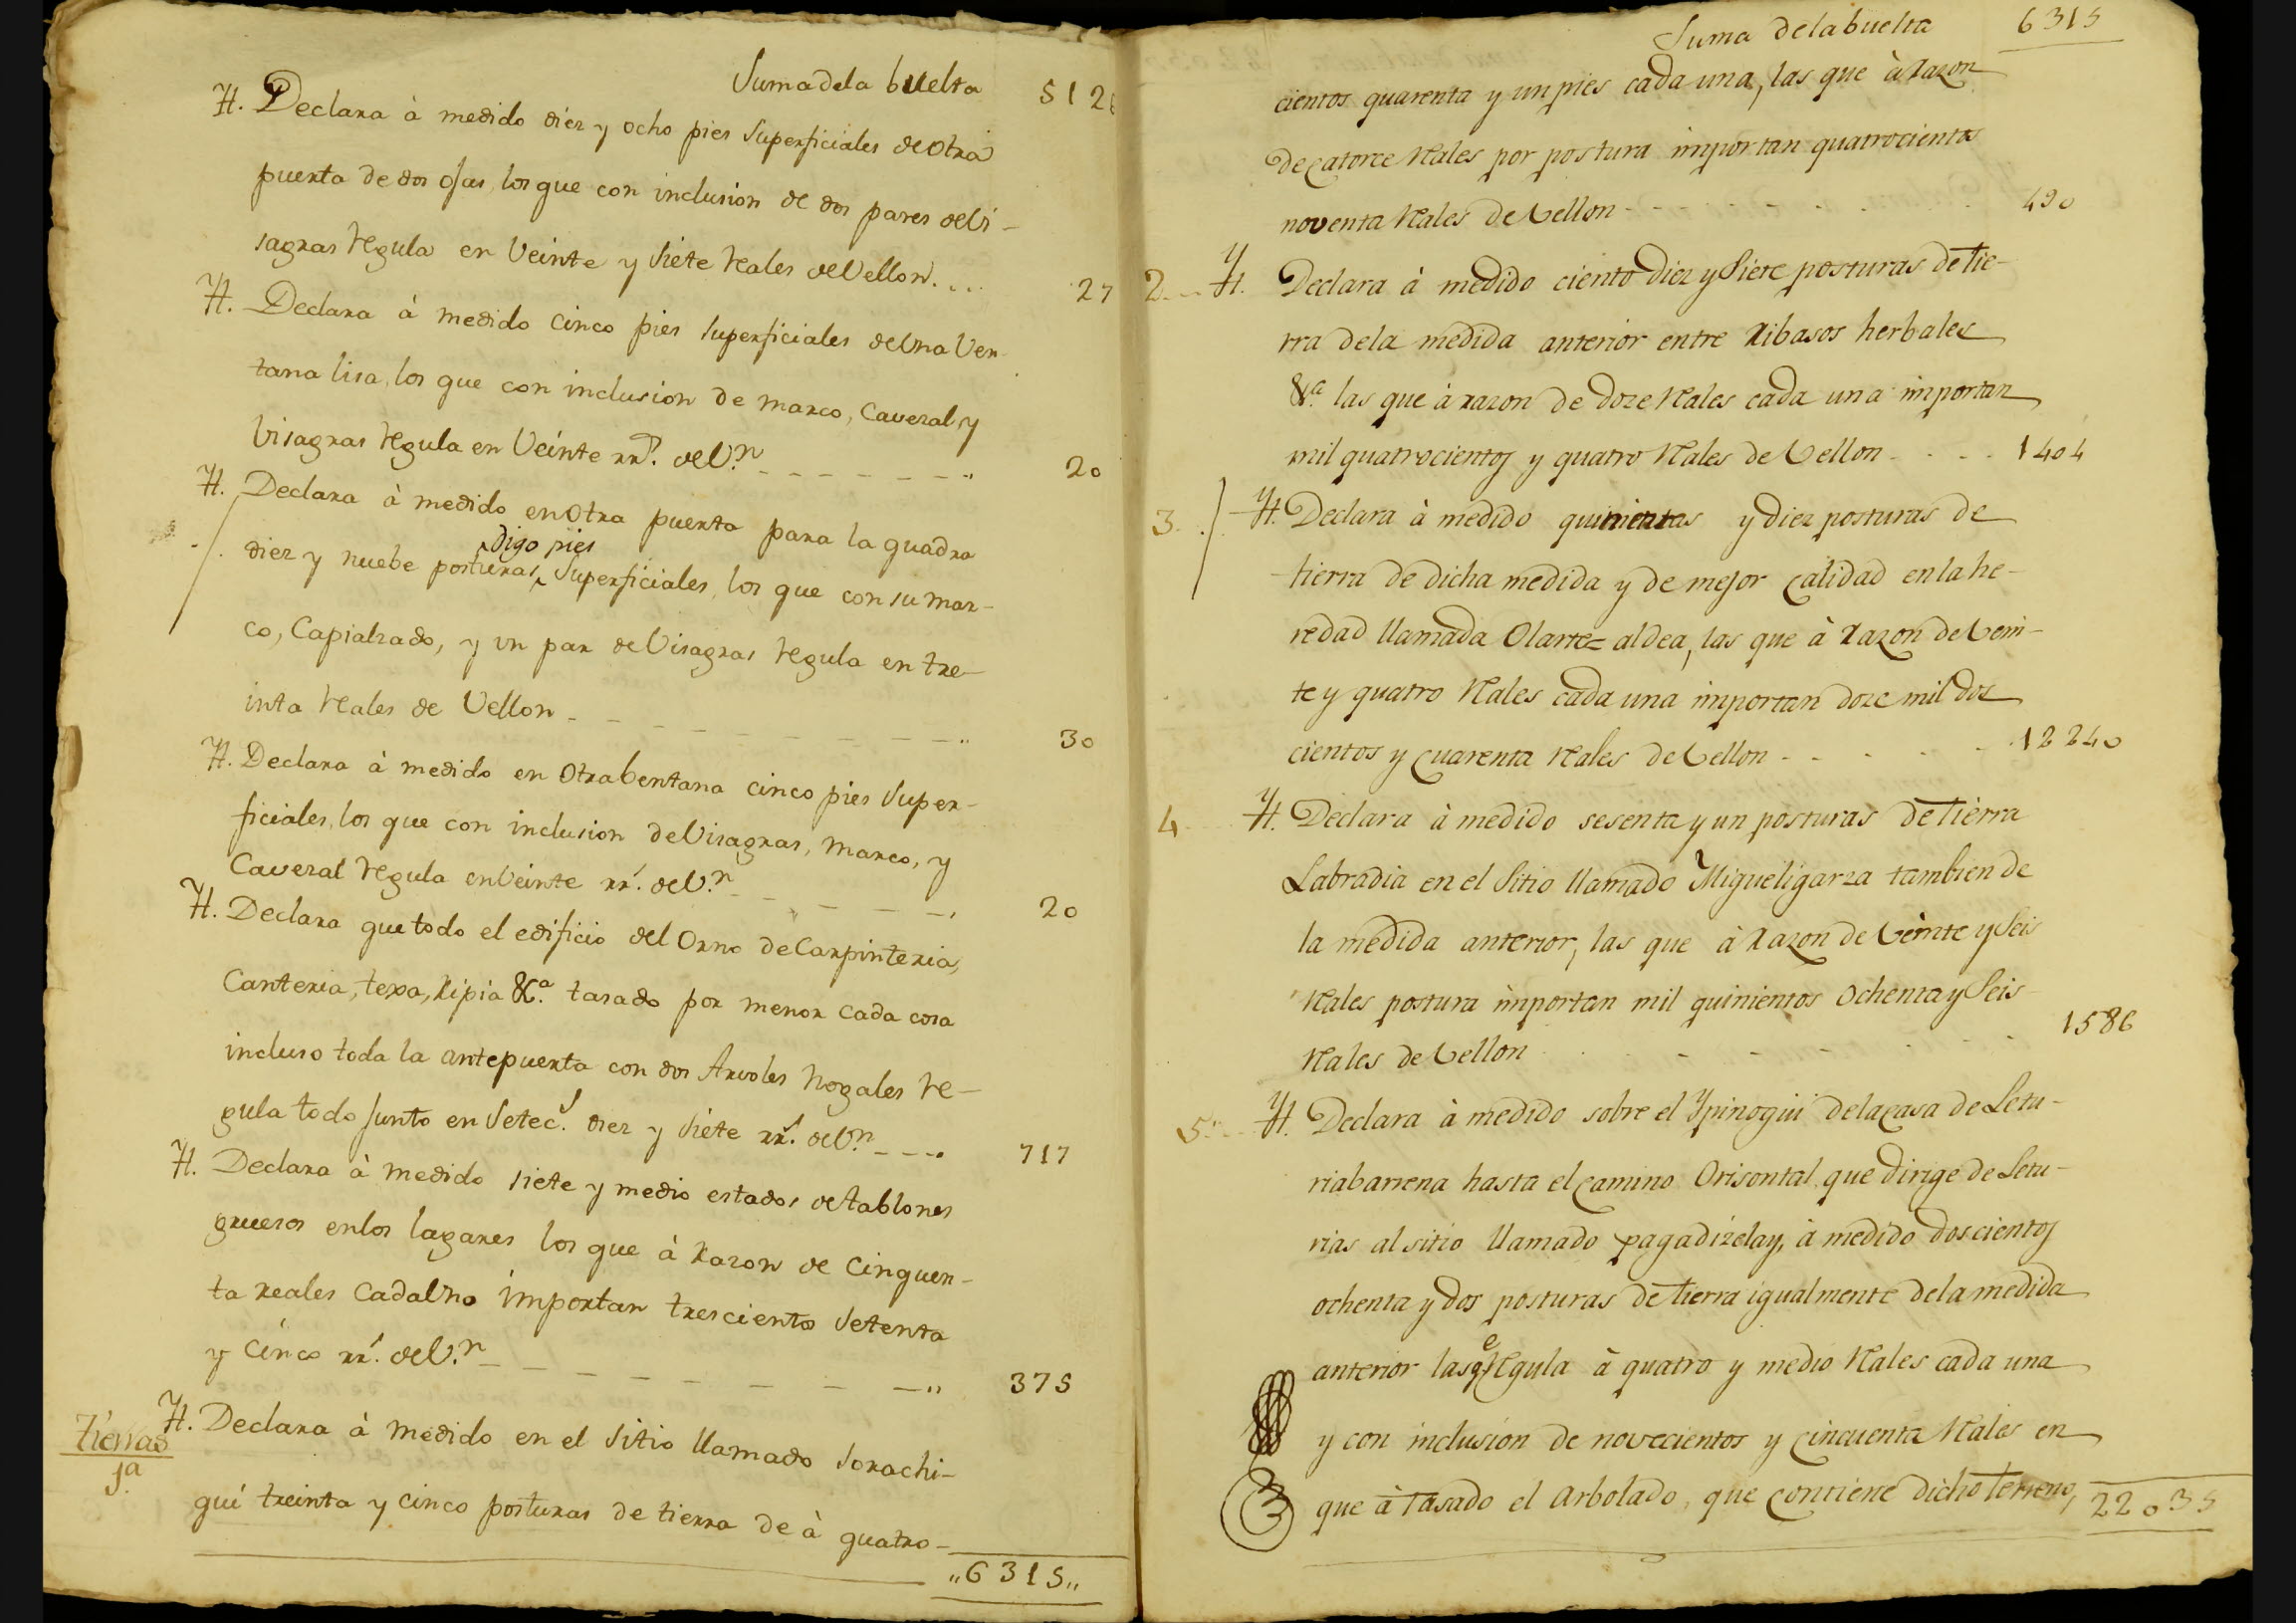 Suma de la buelta 5126
Yt. Declara à medido diez y ocho pies superficiales de otra
puerta de dos ojas, los que con inclusion de dos pares de vi-
sagras regula en veinte y siete reales de Vellon. . . . 27
Yt. Declara à medido cinco pies superficiales de Una Ven-
tana lisa, los que con inclusion de marco, Caveral y
visagras regula en Veinte rrs. de V.n 20
Yt. Declara à medido en otra puerta para la quadra
digo pies
diez y nuebe posturas, superficiales, los que con su mar-
co, Capialzado, y un par de Visagras regula en tre-
inta reales de Vellon 30
Yt. Declara à medido en otra bentana cinco pies super-
ficiales, los que con inclusion de Visagras, marco, y
Caveral regula en Veinte rrs. de V.n 20
Yt. Declara que todo el edificio del Orno de Carpinteria,
Canteria, texa, ripia &.a tasado por menor cada cosa
incluso toda la antepuerta con dos Arvoles Nogales re-
gula todo junto en Setec.s diez y siete rrs. de V.n 717
Yt. Declara à medido siete y medio estados de tablones
gruesos en los lagares los que à razon de Cinquen-
ta reales cada Uno importan trescientos setenta
y Cinco rrs. de V.n 375
Tierras
1.a
Yt. Declara à medido en el sitio llamado sorachi-
gui treinta y cinco posturas de tierra de à quatro-
"6315"
Suma de la buelta 6315
cientos quarenta y un pies cada una, las que à razon
de catorce reales por postura importan quatrocientos
noventa reales de Vellon 490
2. Yt. Declara à medido ciento diez y siete posturas de tie-
rra de la medida anterior entre ribasos herbales
&.a las que à razon de doze reales cada una importan
mil quatrocientos y quatro reales de Vellon 1404
3. Yt. Declara à medido quinientas y diez posturas de
tierra de dicha medida y de mejor calidad en la he-
redad llamada Olarte= aldea, las que à razon de Vein-
te y quatro reales cada una importan doze mil dos
cientos y cuarenta reales de Vellon 12240
4 Yt. Declara à medido sesenta y un posturas de tierra
Labradia en el sitio llamado Migueligarza tambien de
la medida anterior, las que à razon de Veinte y seis
reales postura importan mil quinientos ochenta y seis
reales de Vellon 1586
5. Yt. Declara à medido sobre el Ypinogui de la casa de Letu-
riabarrena hasta el camino Orisontal que dirige de Letu-
rias al sitio llamado pagadizelay, à medido doscientos
ochenta y dos posturas de tierra igualmente de la medida
anterior las q.e regula à quatro y medio reales cada una
y con inclusion de novecientos y cincuenta reales en
que à tasado el arbolado, que contiene dicho terreno, 22035